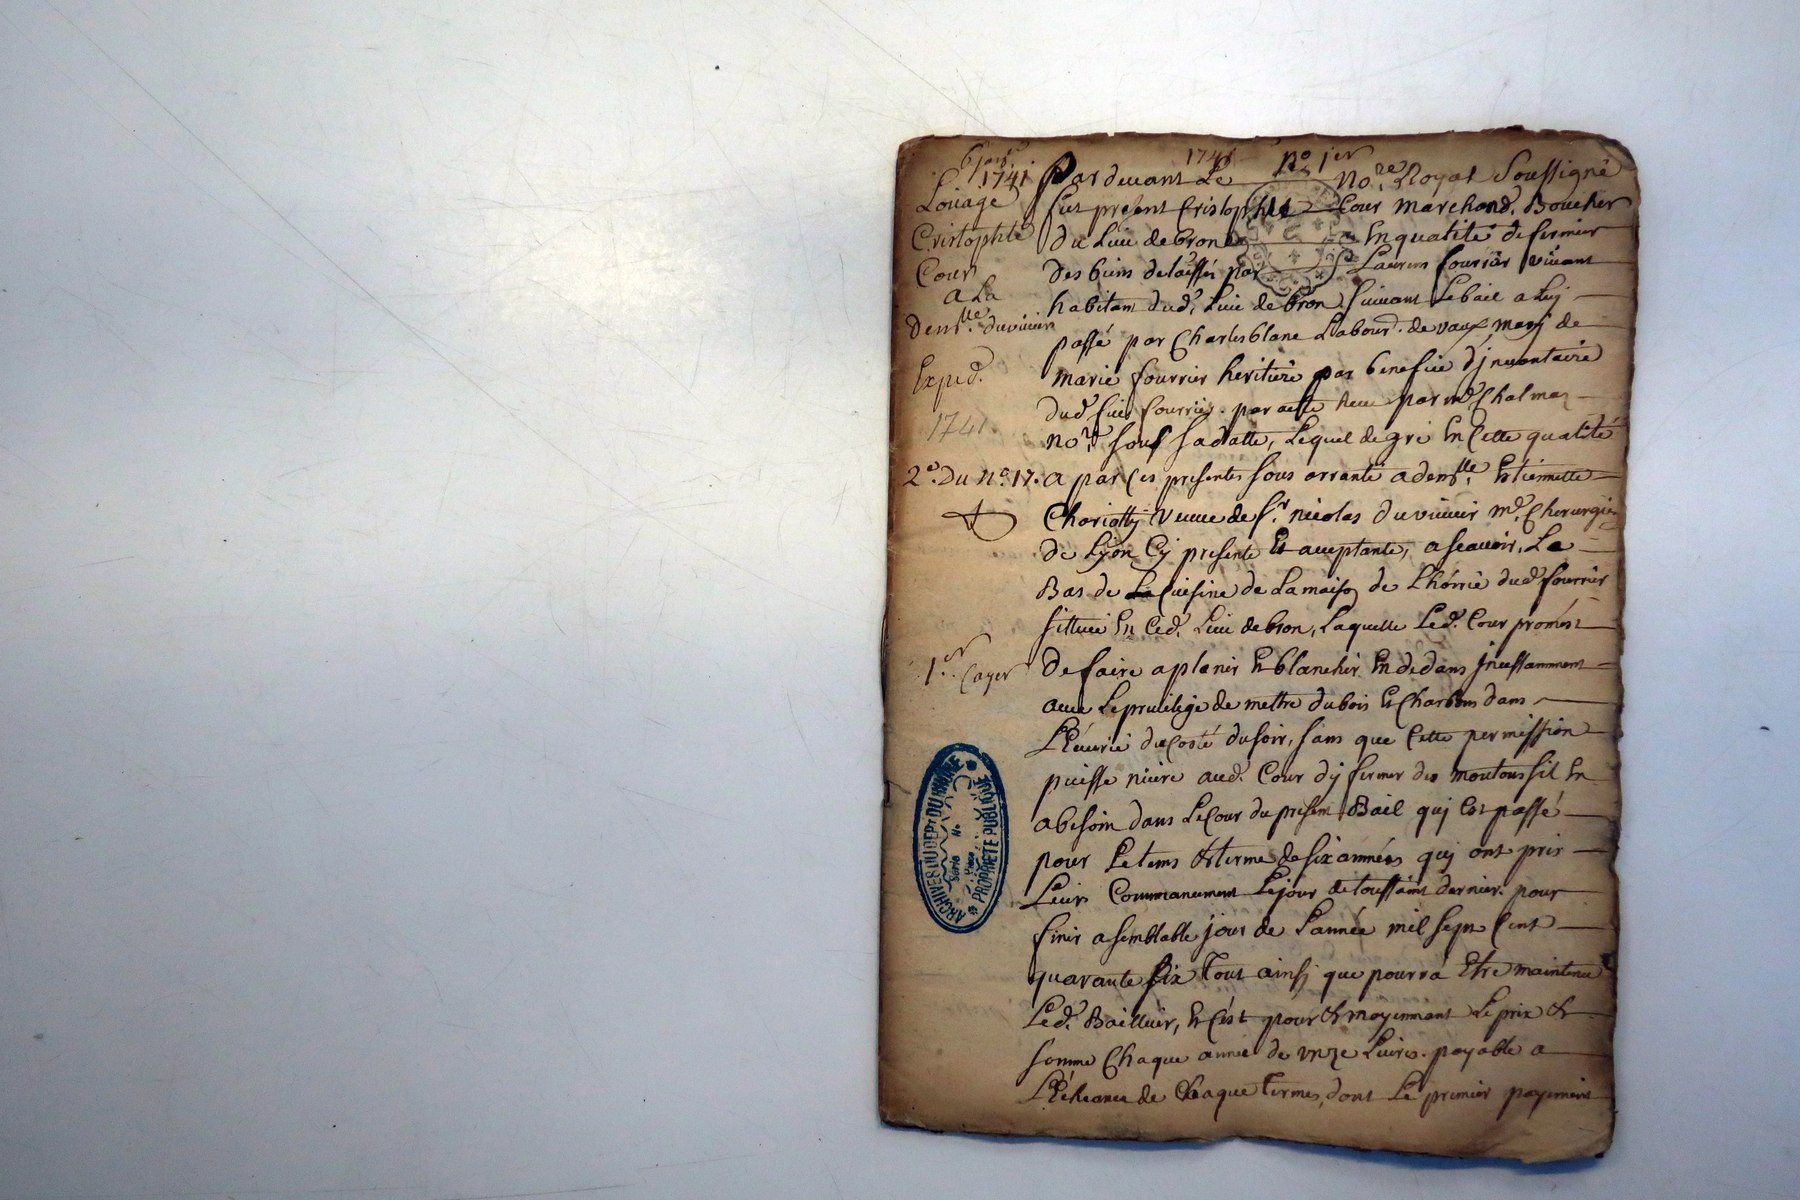 6 janv.
1741
Louage
Cristophle
Cour
a La
Dem.lle duvivier
Exped.
1741.
2e. Du n.o 17.
1.er Cayer
1741 No 1er
Par devant Le No.re Royal Soussigné
fut present Cristophle Cour marchand. Boucher
du Lieu de bron En qualité de fermier
Des biens delaissés par Sr Laurens fourrier vivant
habitant dud. Lieu de bron suivant Le bail a Luy
passé par Charles blanc Labour. de vaux, mary de
marie fourrier heritiere par benefice d'jnventaire
dud. feu fourrier. par acte Receu par me. Chalmas
no.re sous sa datte, Lequel de gré En Cette qualité
a par Ces presentes sous arranté a dem.lle Estiennette
veuve de S.r nicolas duvivier me. Chirurgien
de Lyon Cy presente Et acceptante, a scavoir, Le
Bas de La Cuisine de La maison de L'hoirie dud. fourrier
sittuée En Ced. Lieu de bron, Laquelle Led. Cour promest
De faire aplanir Et blanchir En dedans jncessamment
avec Le privilege de mettre du bois Et Charbons dans
L'Ecurie du Costé du soir, sans que Cette permission
puisse nuire aud. Cour d'y fermer des moutons sil En
a besoin dans Le Cour du present Bail quj Est passé
pour Le tems & terme de six années quj ont pris
Leur Commancement Le jour de toussaint dernier. pour
finir a semblable jour de L'année mil sept Cent
quarante six Tout ainsj que pourra Etre maintenu
Led. Bailleur, Et C'est pour & moyennant Le prix &
somme Chaque année de unze Livres. payable a
L'Echeance de Chaque Termes, dont Le premier payement
ARCHIVES DU DEPT DU RHONE
Série No
Pièce
PROPRIÉTÉ PUBLIQUE